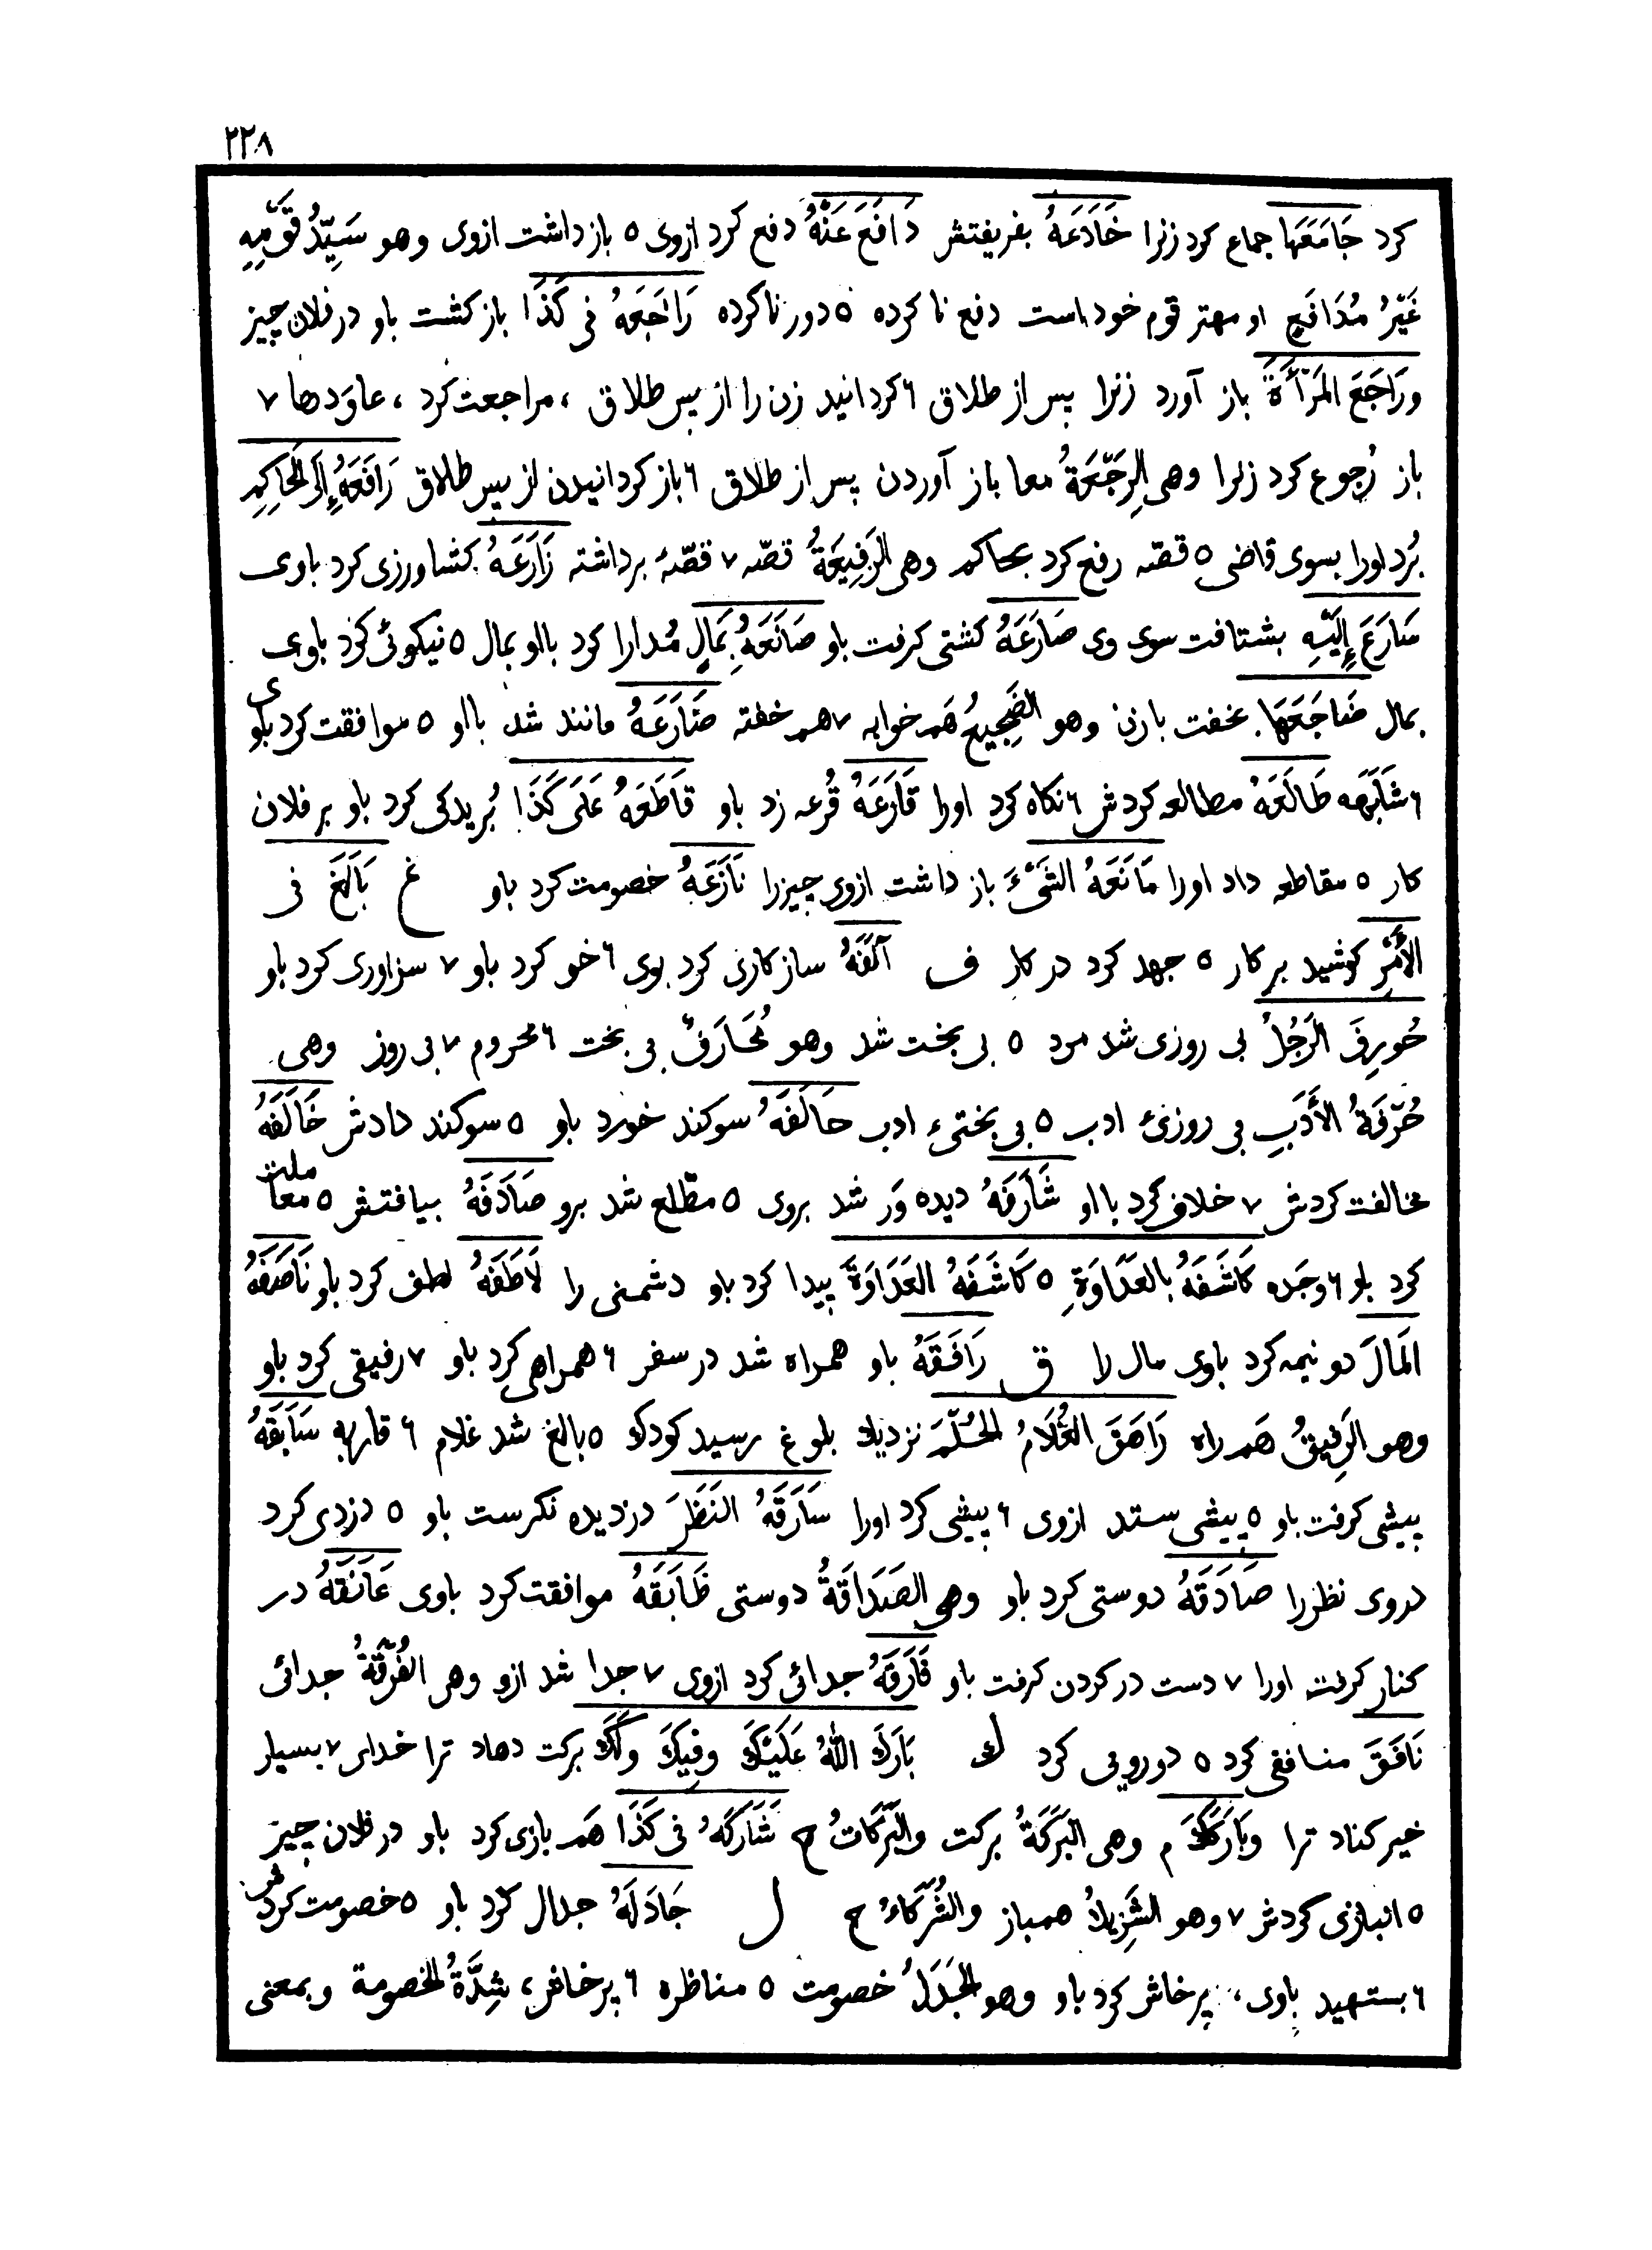 ۲۲۸
کرد جَامَعَهَا جماع کرد زنرا خَادَعَهُ بفریفتش دَافَعَ عَنْهُ دفع کرد ازوی ۵ بازداشت ازوی وهو سَیِّدُ قَوْمِهِ
غَیْرُ مُدَافَعٍ او مهتر قوم خود است دفع نا کرده ۵ دور ناکرده رَاجَعَهُ فی کَذَا باز کشت باو در فلان چیز
ورَاجَعَ المَرْأَةَ باز آورد زنرا پس از طلاق ۶ کردانید زن را از پس طلاق ، مراجعت کرد ، عاوَدها ۷
باز رُجوع کرد زنرا وهی الرَجْعَةُ معا باز آوردن پس از طلاق ۶ باز کردانیدن از پس طلاق رَافَعَهُ إِلَی الحَاکِمِ
بُرد اورا بسوی قاضی ۵ قصّه رفع کرد بحاکم وهی الرَفِیعَةُ قصّه ۷ قصّهٔ برداشته زَارَعَهُ کشاورزی کرد باوی
سَارَعَ إِلَیْهِ بشتافت سوی وی صَارَعَهُ کشتی کرفت باو صَانَعَهُ بِمَالٍ مُدارا کرد بااو بمال ۵ نیکوئی کرد باوی
بمال ضَاجَعَهَا بخفت بازن وهو الضَجِیعُ هَم خوابه ۷ هم خفته ضَارَعَهُ مانند شد بااو ۵ موافقت کرد باوی
۶ شَابَهَه طَالَعَهُ مطالعه کردش ۶ نکاه کرد اورا قَارَعَهُ قُرعه زد باو قَاطَعَهُ عَلَی کَذَا بُریدکی کرد باو بر فلان
کار ۵ مقاطعه داد اورا مَانَعَهُ الشَیْءَ باز داشت ازوی چیزرا نَازَعَهُ خصومت کرد باو غ بَالَغَ فی
الأَمْرِ کوشید بر کار ۵ جهد کرد در کار ف آلَفَهُ سازکاری کرد بوی ۶ خو کرد باو ۷ سزاواری کرد باو
حُورِفَ الرَجُلُ بی روزی شد مرد ۵ بی بخت شد وهو مُحَارَفٌ بی بخت ۶ محروم ۷ بی روزی وهی
حُرْفَةُ الأَدَبِ بی روزئ ادب ۵ بی بختیء ادب حَالَفَهُ سوکند خورد باو ۵ سوکند دادش خَالَفَهُ
مخالفت کردش ۷ خلاف کرد بااو شَارَفَهُ دیده وَر شد بروی ۵ مطّلع شد برو صَادَفَهُ بیافتش ۵ معا ملت
کرد باو ۶ وجَده کَاشَفَهُ بالعَدَاوَةِ ۵ کَاشَفَهُ العَدَاوَةَ پیدا کرد باو دشمنی را لَاطَفَهُ لطف کرد باو نَاصَفَهُ
المَالَ دو نیمه کرد باوی مال را ق رَافَقَهُ باو همراه شد در سفر ۶ همراهی کرد باو ۷ رفیقی کرد باو
وهو الرَفِیقُ هَم راه رَاهَقَ الغُلَامُ الحُلْمَ نزدیك بلوغ رسید کودك ۵ بالغ شد غلام ۶ قاربه سَابَقَهُ
پیشی کرفت باو ۵ پیشی ستد ازوی ۶ پیشی کرد اورا سَارَقَهُ النَظَرَ دزدیده نکرست باو ۵ دزدی کرد
دروی نظررا صَادَقَهُ دوستی کرد باو وهی الصَدَاقَةُ دوستی طَابَقَهُ موافقت کرد باوی عَانَقَهُ در
کنار کرفت اورا ۷ دست در کردن کرفت باو فَارَقَهُ جدائی کرد ازوی ۷ جدا شد ازو وهی الفُرْقَةُ جدائی
نَافَقَ منافقی کرد ۵ دورویی کرد ك بَارَكَ اللّٰهُ عَلَیْكَ وفِیكَ ولَكَ برکت دهاد ترا خدای ۷ بسیار
خیر کناد ترا وبَارَكَكَ م وهی البَرَکَةُ برکت والبَرَکَاتُ ج شَارَکَهُ فی کَذَا هَم بازی کرد باو در فلان چیز
۵ انبازی کردش ۷ وهو الشَرِیكُ همباز والشُرَکَاءُ ج ل جَادَلَهُ جدال کرد باو ۵ خصومت کرد
۶ بستهید باوی ، پرخاش کرد باو وهو الجَدَلُ خصومت ۵ مناظره ۶ پرخاش ، شِدَّةُ الخصومة وبمعنی